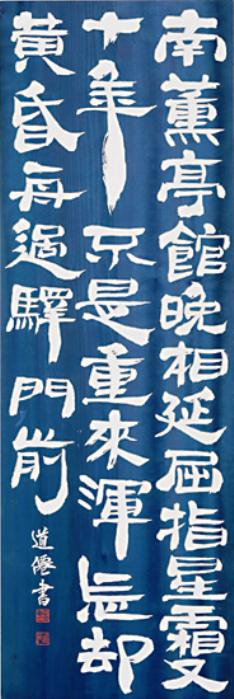 南薰亭館晚相延屈指星霜又
十年不是重來渾忘却
黃昏再過驛門前
道僊書